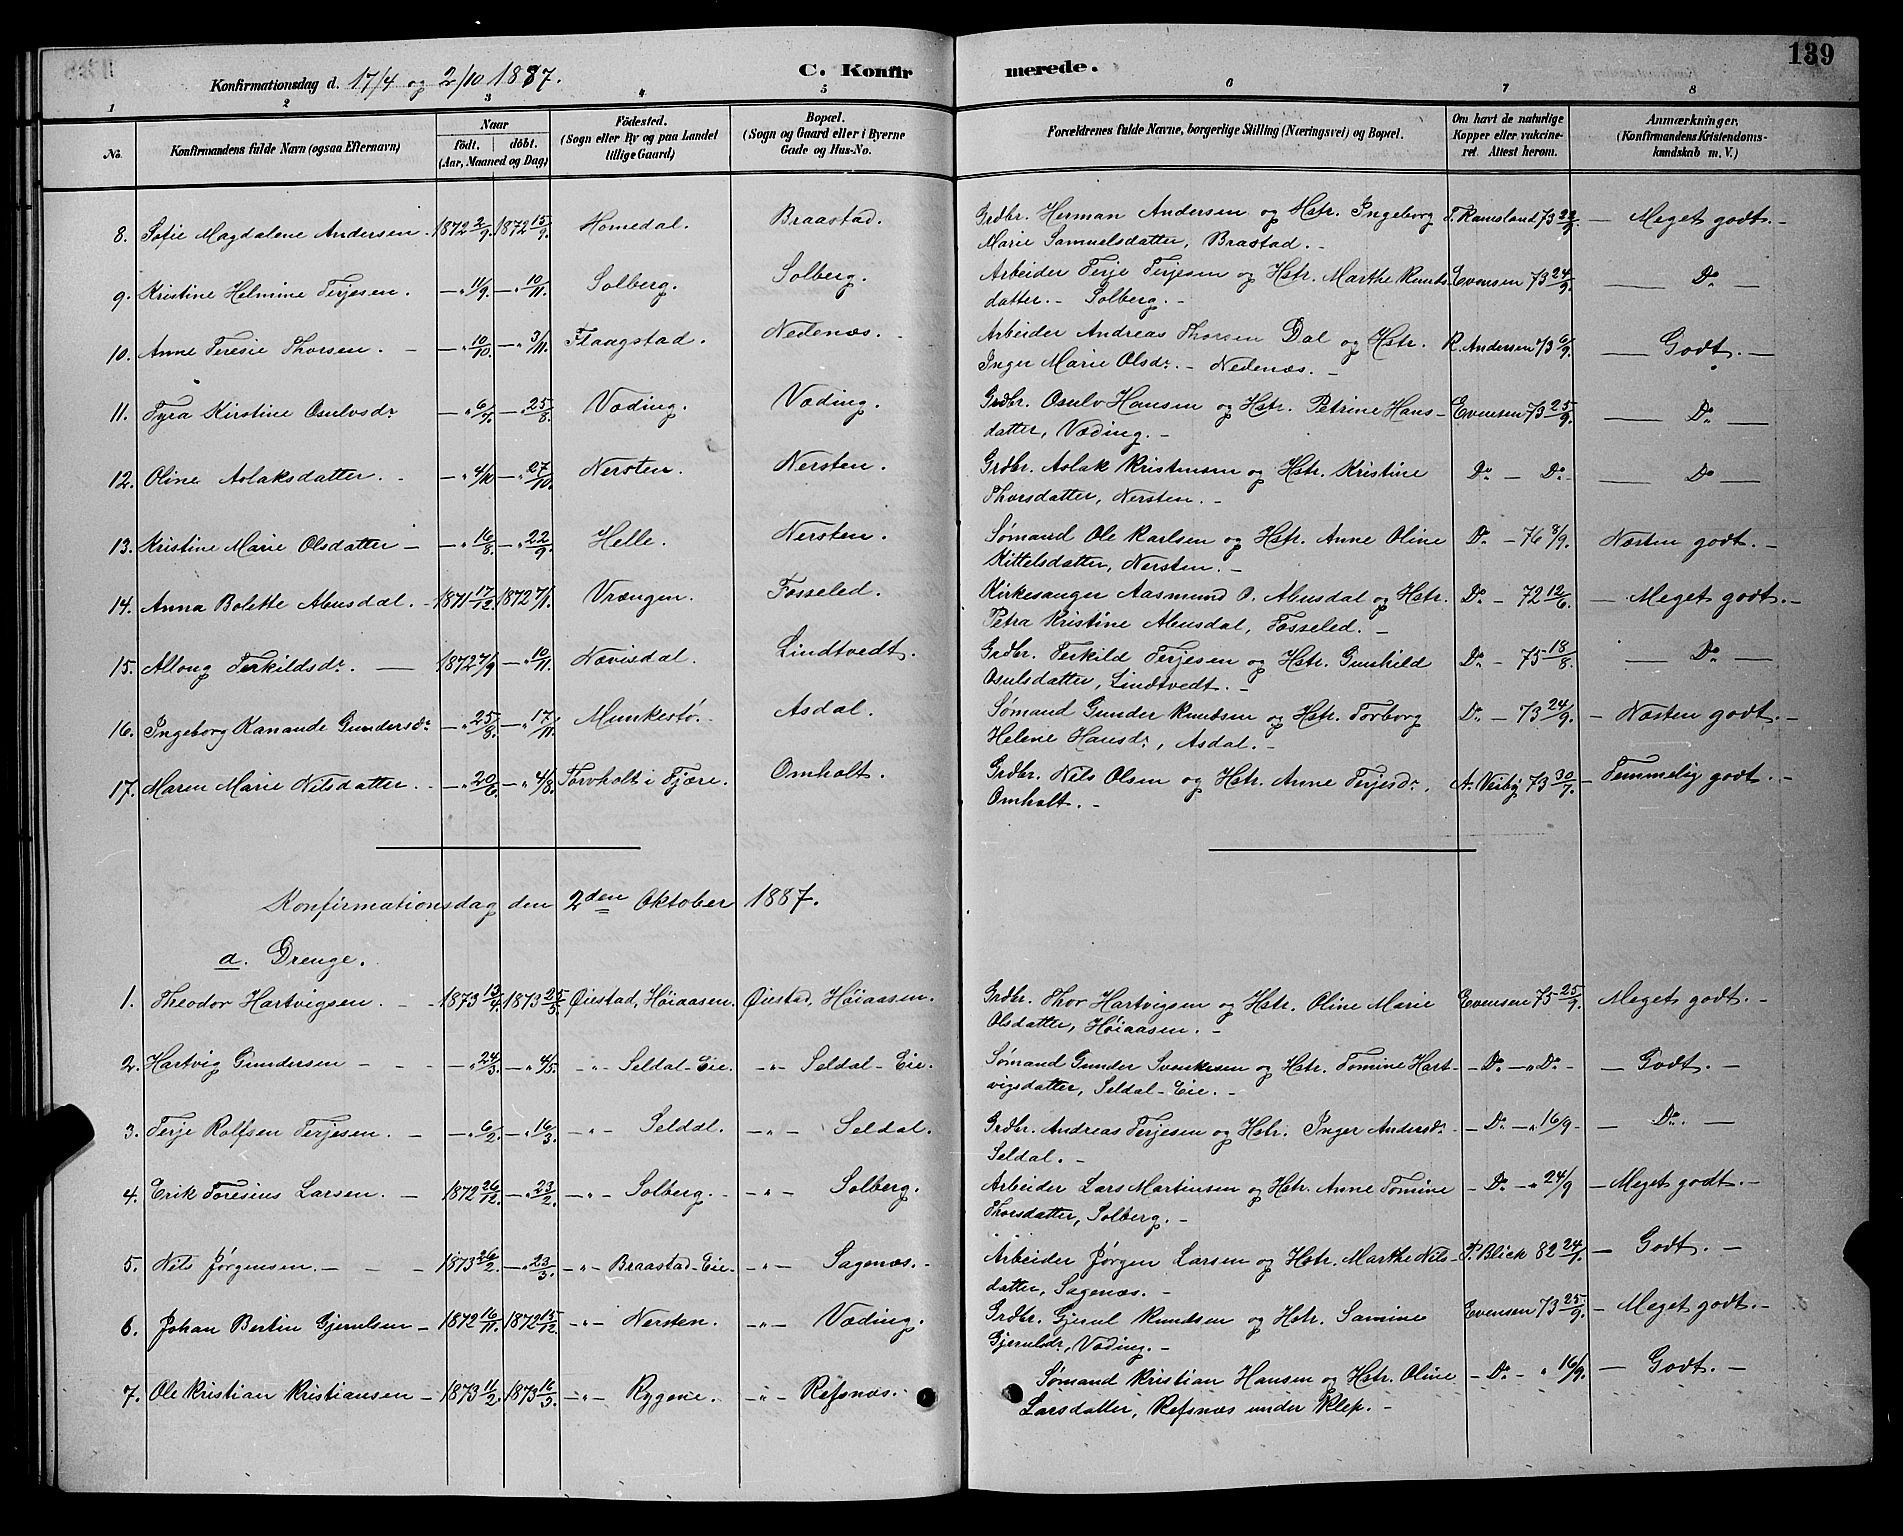 139
Konfirmationsdag d. 17/4 og 2/10 1887. C. Konfirmerede.
1 2 3 4 5 6 7 8
No. Konfirmandens fulde Navn (ogsaa Efternavn) Naar født. døbt. (Aar, Maaned og Dag) Födested. (Sogn eller By og paa Landet tillige Gaard) Bopæl. (Sogn og Gaard eller i Byerne Gade og Hus-No. Forældrenes fulde Navne, borgerlige Stilling (Næringsvei) og Bopæl. Om havt de naturlige Kopper eller vakcineret. Attest herom. Anmærkninger. (Konfirmandens Kristendomskundskab m. V.)
8. Sofie Magdalene Andersen. 1872 2/9. 1872 15/9. Homedal. Braastad. Grdbr. Herman Andersen og Hstr. Ingeborg T. Ramsland 73 22/9. – Meget godt. –
Marie Samuelsdatter, Brastad. –
9. Kristine Helmine Terjesen. –„ 11/9. –„ 10/11. Solberg. Solberg. Arbeider Terje Terjesen og Hstr. Marthe Knuds- Evensen 73 24/9. — Do —
datter. – Solberg. –
10. Anne Teresie Thorsen. – –„ 10/10. –„ 3/11. Flaagstad. Nedenæs. Arbeider Andreas Thorsen Dal og Hstr. R. Andersen 73 6/9. — Godt. —
Inger Marie Olsdr. – Nedenæs. –
11. Tyra Kirstine Osulvsdr –„ 6/7. –„ 25/8. Væding. Væding. Grdbr. Osulv Hansen og Hstr. Petrine Hans- Evensen 73 25/9. — Do —
datter, Væding. –
12. Oline Aslaksdatter. –„ 4/10 –„ 27/10. Nersten. Nersten. Grdbr. Aslak Kristensen og Hstr. Kristine Do – Do – — Do —
Thorsdatter, Nersten. –
13. Kristine Marie Olsdatter – –„ 16/8. –„ 22/9. Helle. Nersten. Sømand Ole Karlsen og Hstr. Anne Oline Do – 76 8/9. Næsten godt. –
Kittelsdatter, Nersten. –
14. Anna Bolette Abusdal. 1871 17/12. 1872 7/1. Vrængen. Fosseled. Kirkesanger Aasmund O. Abusdal og Hstr. Do – 72 12/6. – Meget godt. –
Petra Kristine Abusdal, Fosseled. –
15. Allong Terkildsdr. — 1872 7/9 –„ 10/11. Nævisdal. Lindtvedt. Grdbr. Terkild Terjesen og Hstr. Gunhild Do – 75 18/8. — Do —
Osulsdatter, Lindtvedt. –
16. Ingeborg Kanande Gundersdr –„ 25/8. –„ 17/11. Munkestø. Asdal. Sømand Gunder Knudsen og Hstr. Torborg Do – 73 24/9. – Næsten godt. –
Helene Hansdr, Asdal. –
17. Maren Marie Nilsdatter. –„ 20/6. –„ 4/8. Torvholt i Fjære. Omholt. Grdbr. Nils Olsen og Hstr. Anne Terjesdr, A. Veiby 73 30/7. – Temmelig godt. –
Omholt. –
Konfirmationsdag den 2den Oktober 1887.
a. Drenge.
1. Theodor Hartvigsen. – 1873 13/4. 1873 25/5. Øiestad, Höiaasen. Øiestad, Höiaasen. Grdbr. Thor Hartvigsen og Hstr. Oline Marie Evensen 75 25/9. Meget godt. –
Olsdatter, Höiaasen. –
2. Hartvig Gundersen – – –„ 24/3. –„ 4/5. –„– Seldal-Eie. –„– Seldal-Eie. Sømand Gunder Svenkesen og Hstr. Tomine Hart- – Do –„ Do – – Godt. –
vigsdatter, Seldal-Eie. –
3. Terje Rolfsen Terjesen. – –„ 6/2. –„ 16/3. –„– Seldal. –„– Seldal. Grdbr. Andreas Terjesen og Hstr. Inger Andersdr – Do –„ 16/9 – – Do. –
Seldal. –
4. Erik Toresius Larsen. – 1872 26/12. –„ 23/2. –„– Solberg. –„– Solberg. Arbeider Lars Martinsen og Hstr. Anne Tomine – Do –„ 24/9 – Meget godt. –
Thorsdatter, Solberg. –
5. Nils Jörgensen. – – – 1873 26/2. –„ 23/3. –„– Braastad-Eie. –„– Sagenæs. Arbeider Jörgen Larsen og Hstr. Marthe Nils- P. Blick 82 24/1. – Godt. –
datter, Sagenæs. –
6. Johan Bertin Gjerulsen – 1872 16/11. 1872 15/12. –„– Nersten. –„– Væding. Grdbr. Gjerul Knudsen og Hstr. Samine Evensen 73 25/9. – Meget godt. –
Gjerulsdr, Væding. –
7. Ole Kristian Kristiansen – 1873 11/2. 1873 16/3. –„– Rygene. –„– Refsnæs. Sømand Kristian Hansen og Hstr. Oline – Do – „ 16/9. – Godt. –
Larsdatter, Refsnæs under Klep. –